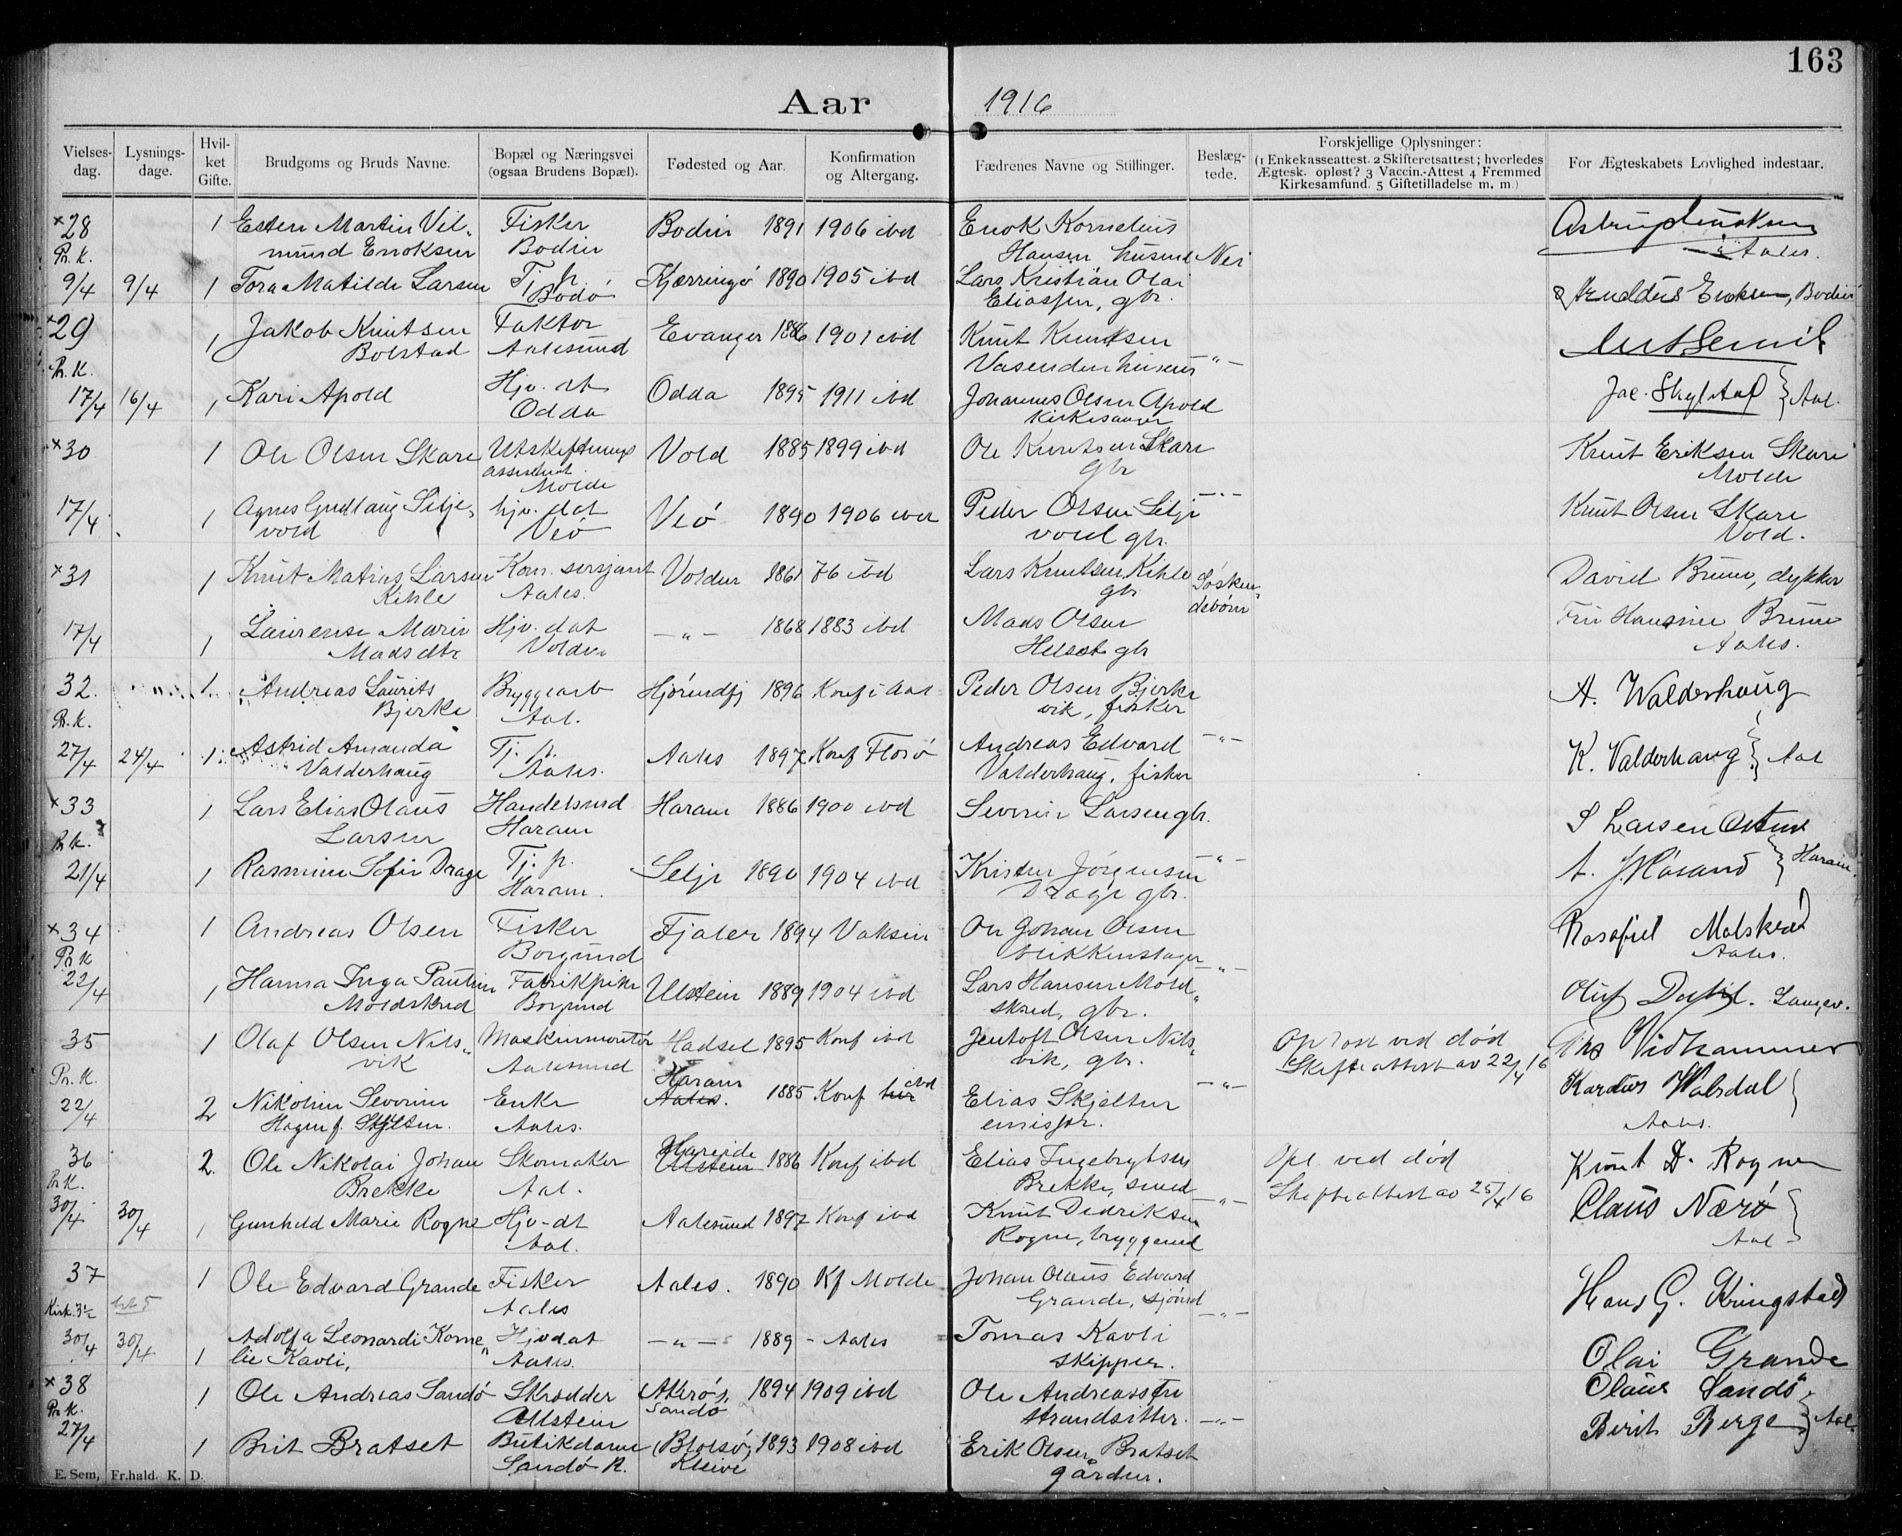 163
Aar 1916
Vielses-dag. Lysnings-dage. Hvil-ket Gifte. Brudgoms og Bruds Navne. Bopæl og Næringsvei (ogsaa Brudens Bopæl). Fødested og Aar. Konfirmation og Altergang. Fædrenes Navne og Stillinger. Beslæg-tede. Forskjellige Oplysninger: (1 Enkekasseattest. 2 Skifteretsattest; hverledes Ægtesk. opløst? 3 Vaccin.-Attest 4 Fremmed Kirkesamfund. 5 Giftetilladelse m. m.) For Ægteskabets Lovlighed indestaar.
×28 1 Esten Martin Vil- Fisker Bodin 1891 1906 ibd Enok Kornelius
Pr. K. mund Enoksen Bodin Hansen husmd Nei Aales.
9/4 9/4 1 Tora Matilde Larsen Tj. p. Kjerringø 1890 1905 ibd Lars Kristian Olai
Bodø Eliassen, gbr. Enoksen, Bodin
×29 1 Jakob Knutsen Faktor Evanger 1886 1901 ibd Knut Knutsen
Pr. K. Bolstad Aalesund Vasenden husmd -"-
17/4 16/4 1 Kari Apold Hjv. dt Odda 1895 1911 ibd Johannes Olsen Apold Jac. Skylstad } Aal.
Odda kirkesanger
×30 1 Ole Olsen Skare Utskiftnings Vold 1885 1899 ibd Ole Knutsen Skare Knut Eriksen Skare
assistent Molde gbr Molde
17/4 1 Agnes Gudlaug Sitje- hjv. dat Veø 1890 1906 ibd Peder Olsen Sitje -"- Knut Olsen Skare
vold Veø vold gbr. Vold.
×31 1 Knut Matias Larsen Kom. sersjant Volden 1861 76 ibd Lars Knutsen Kihle Søsken- David Brune, dykker
Kihle Aales. gbr debørn
17/4 1 Laurense Marie Hjv. dat -"- 1868 1883 ibd Mads Olsen Fru Hansine Brune
Madsdtr Volden Helset gbr Aales.
32. 1 Andreas Laurits Bryggearb Hjørendfj 1896 Konf i Aal Peder Olsen Bjerke A. Walderhaug
Pr. K. Bjerke Aal. vik, fisker
27/4 24/4 1 Astrid Amanda Tj. p. Aales 1897 Konf Florø Andreas Edvard -"- K. Valderhaug } Aal
Valderhaug Aales. Valderhaug, fisker
×33 1 Lars Elias Olaus Handelsmd Haram 1886 1900 ibd Severin Larsen gbr. S Larsen
Pr. K. Larsen Haram
21/4 1 Rasmine Sofie Drage Tj. p. Selje 1890 1904 ibd Kristen Jørgensen -"- A. J Røsand } Haram.
Haram. Drage gbr.
×34 1 Andreas Olsen Fisker Fjaler 1894 Vaksin Ole Johan Olsen Molskred
Pr K Borgund blikkenslager Aales.
22/4 1 Hanna Inga Pauline Fabrikpike Ulstein 1889 1904 ibd Lars Hansen Mold- -"- Oluf
Moldskred Borgund skred, gbr.
35 1 Olaf Olsen Nils- Maskinmontør Hadsel 1895 Konf ibd Jentoft Olsen Nils- Opløst ved død Vidhammer
Pr. K. vik Aalesund vik, gbr. Skifteattest av 22/4 16
22/4 2 Nikoline Severine Enke Haram Aales. 1885 Konf her ibd Elias Skjelten -"- Walsdal }
Hagen f. Skjelten. Aales. emissær. Aales.
36 2. Ole Nikolai Johan Skomaker Hareide Ulstein 1886 Konf ibd Elias Ingebrigtsen Opl. ved død Knut D. Rogne
Pr. K. Brekke Aal. Brekke, smed Skifteattest av 25/4 16
30/4 30/4 1 Gunhild Marie Rogne Hjv-dt Aalesund 1897 Konf ibd Knut Dedriksen -"- Claus Nærø }
Aal. Rogne, bryggemd Aal
37 1 Ole Edvard Grande Fisker Aales. 1890 Kf Molde Johan Olaus Edvard Hans G. Kringstad
Kirk. 3½ Aales Grande, sjømd -"-
30/4 30/4 1 Adolfa Leonardi Korne- Hjvdat -"- 1889 - Aales Tomas Kavli Olai Grande
lie Kavli, Aales. skipper.
×38 1 Ole Andreas Sandø Skrædder Akrø, 1894 1909 ibd Ole Andreassen Olaus Sandø
Pr. K. Ulstein Sandø strandsitter. -"-
27/4 1 Brit Bratset Butikdame (Bolsø, 1893 1908 ibd Erik Olsen Bratset Berit Berge } Aal.
Sandø R. Kleive gården.
E. Sem, Fr.hald. K. D.